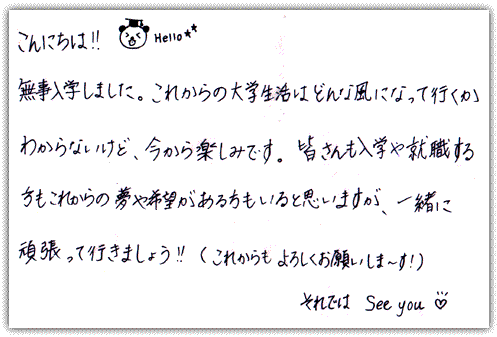 こんにちは!! Hello**
無事入学しました。これからの大学生活はどんな風になって行くか
わからないけど、今から楽しみです。皆さんも入学や就職する
方もこれからの夢や希望がある方もいると思いますが、一緒に
頑張って行きましょう!!(これからもよろしくお願いしま〜す!)
それでは See you ♡